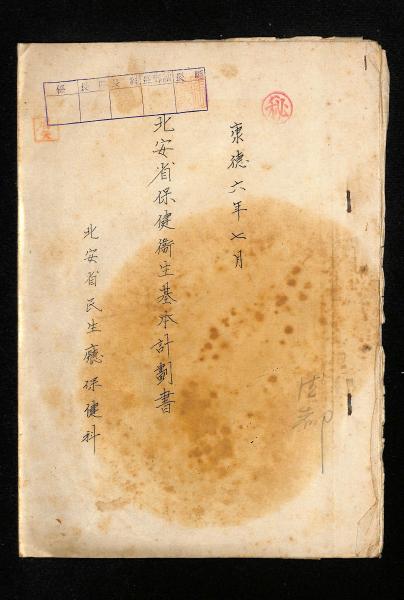 秘
康德六年七月
北安省保健衛生基本計劃書
北安省民生廳保健科